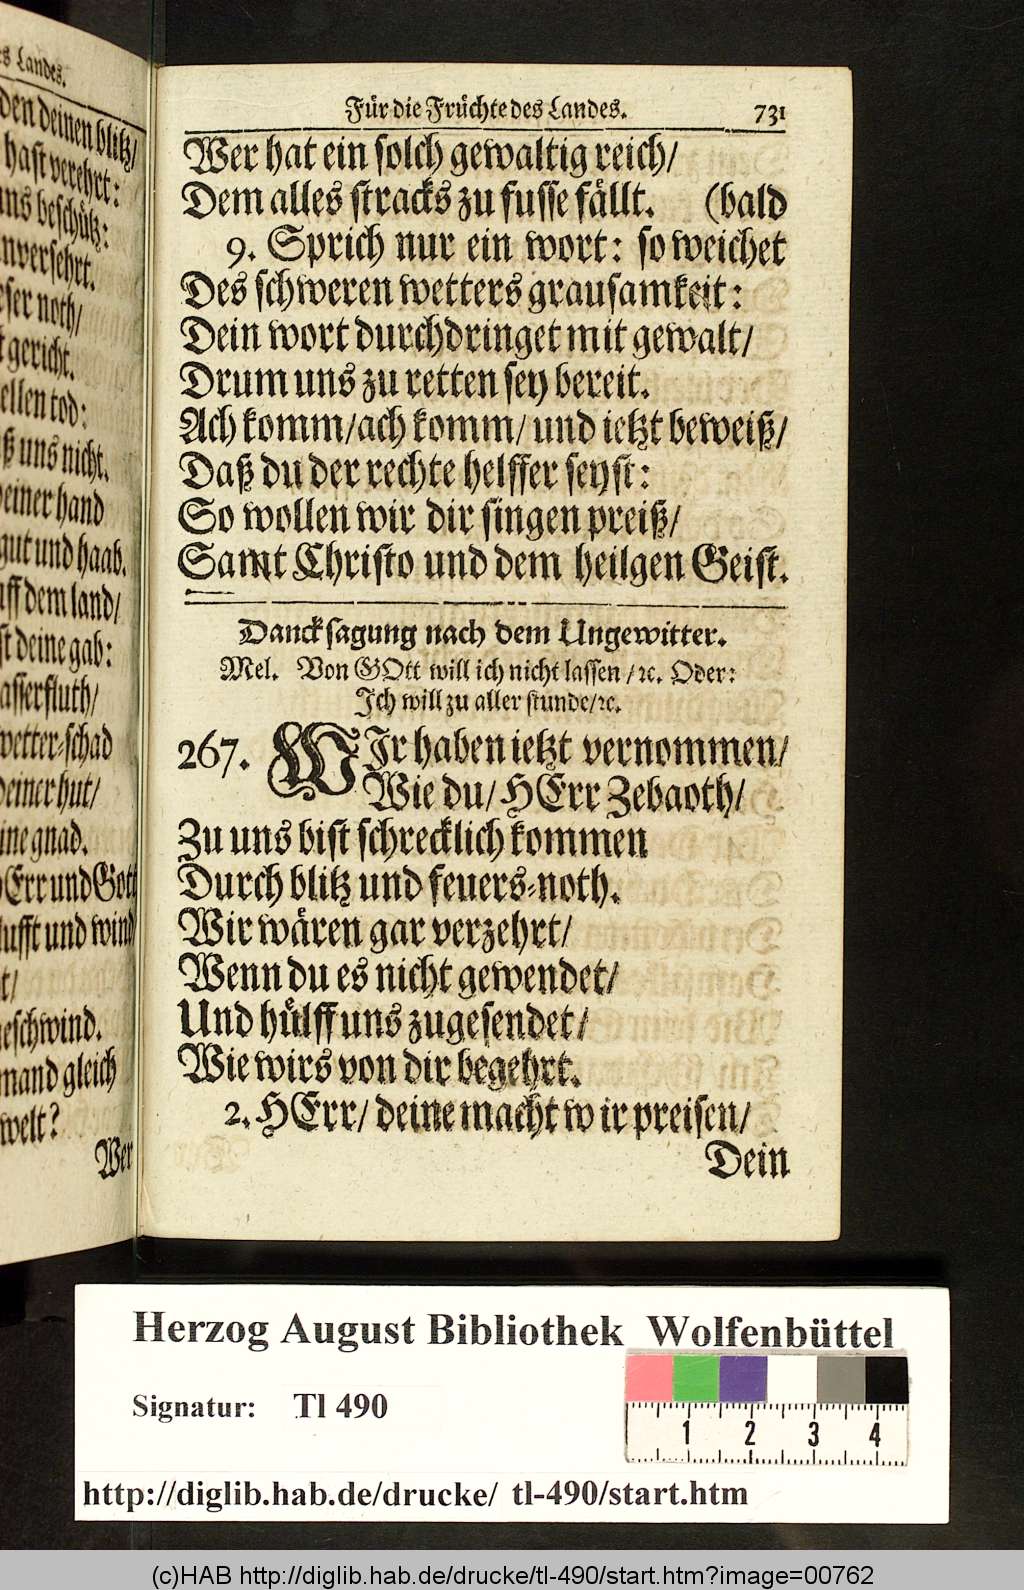 es Landes.
den deinen blitz/
hast verehrt:
uns beschütz:
unversehrt.
eser noth/
gericht.
ellen tod:
ß uns nicht.
deiner hand
gut und haab.
uff dem land/
st deine gab:
asserfluth/
wetter-schad
deiner hut/
ine gnad.
HErr und Gott
lufft und wind
t/
geschwind.
mand gleich
welt?
Wer
Für die Früchte des Landes. 731
Wer hat ein solch gewaltig reich/
Dem alles stracks zu fusse fällt. (bald
9. Sprich nur ein wort: so weichet
Des schweren wetters grausamkeit:
Dein wort durchdringet mit gewalt/
Drum uns zu retten sey bereit.
Ach komm/ach komm/ und ietzt beweiß/
Daß du der rechte helffer seyst:
So wollen wir dir singen preiß/
Samt Christo und dem heilgen Geist.
Dancksagung nach dem Ungewitter.
Mel. Von GOtt will ich nicht lassen/ꝛc. Oder:
Ich will zu aller stunde/ꝛc.
267. WIr haben ietzt vernommen/
Wie du/ HErr Zebaoth/
Zu uns bist schrecklich kommen
Durch blitz und feuers-noth.
Wir wären gar verzehrt/
Wenn du es nicht gewendet/
Und hülff uns zugesendet/
Wie wirs von dir begehrt.
2. HErr/ deine macht wir preisen/
Dein
Herzog August Bibliothek Wolfenbüttel
Signatur: Tl 490
1 2 3 4
http://diglib.hab.de/drucke/ tl-490/start.htm
(c)HAB http://diglib.hab.de/drucke/tl-490/start.htm?image=00762